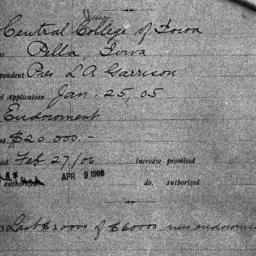 Central College of Iowa
Pella Iowa
pondent Pres L A Garrison
of Application Jan. 25, 05
Endowment
$20 000.-
Feb 27/06 Increase promised
authorized APR 9 1908 do. authorized
Last $2000 of $60000 new endowment